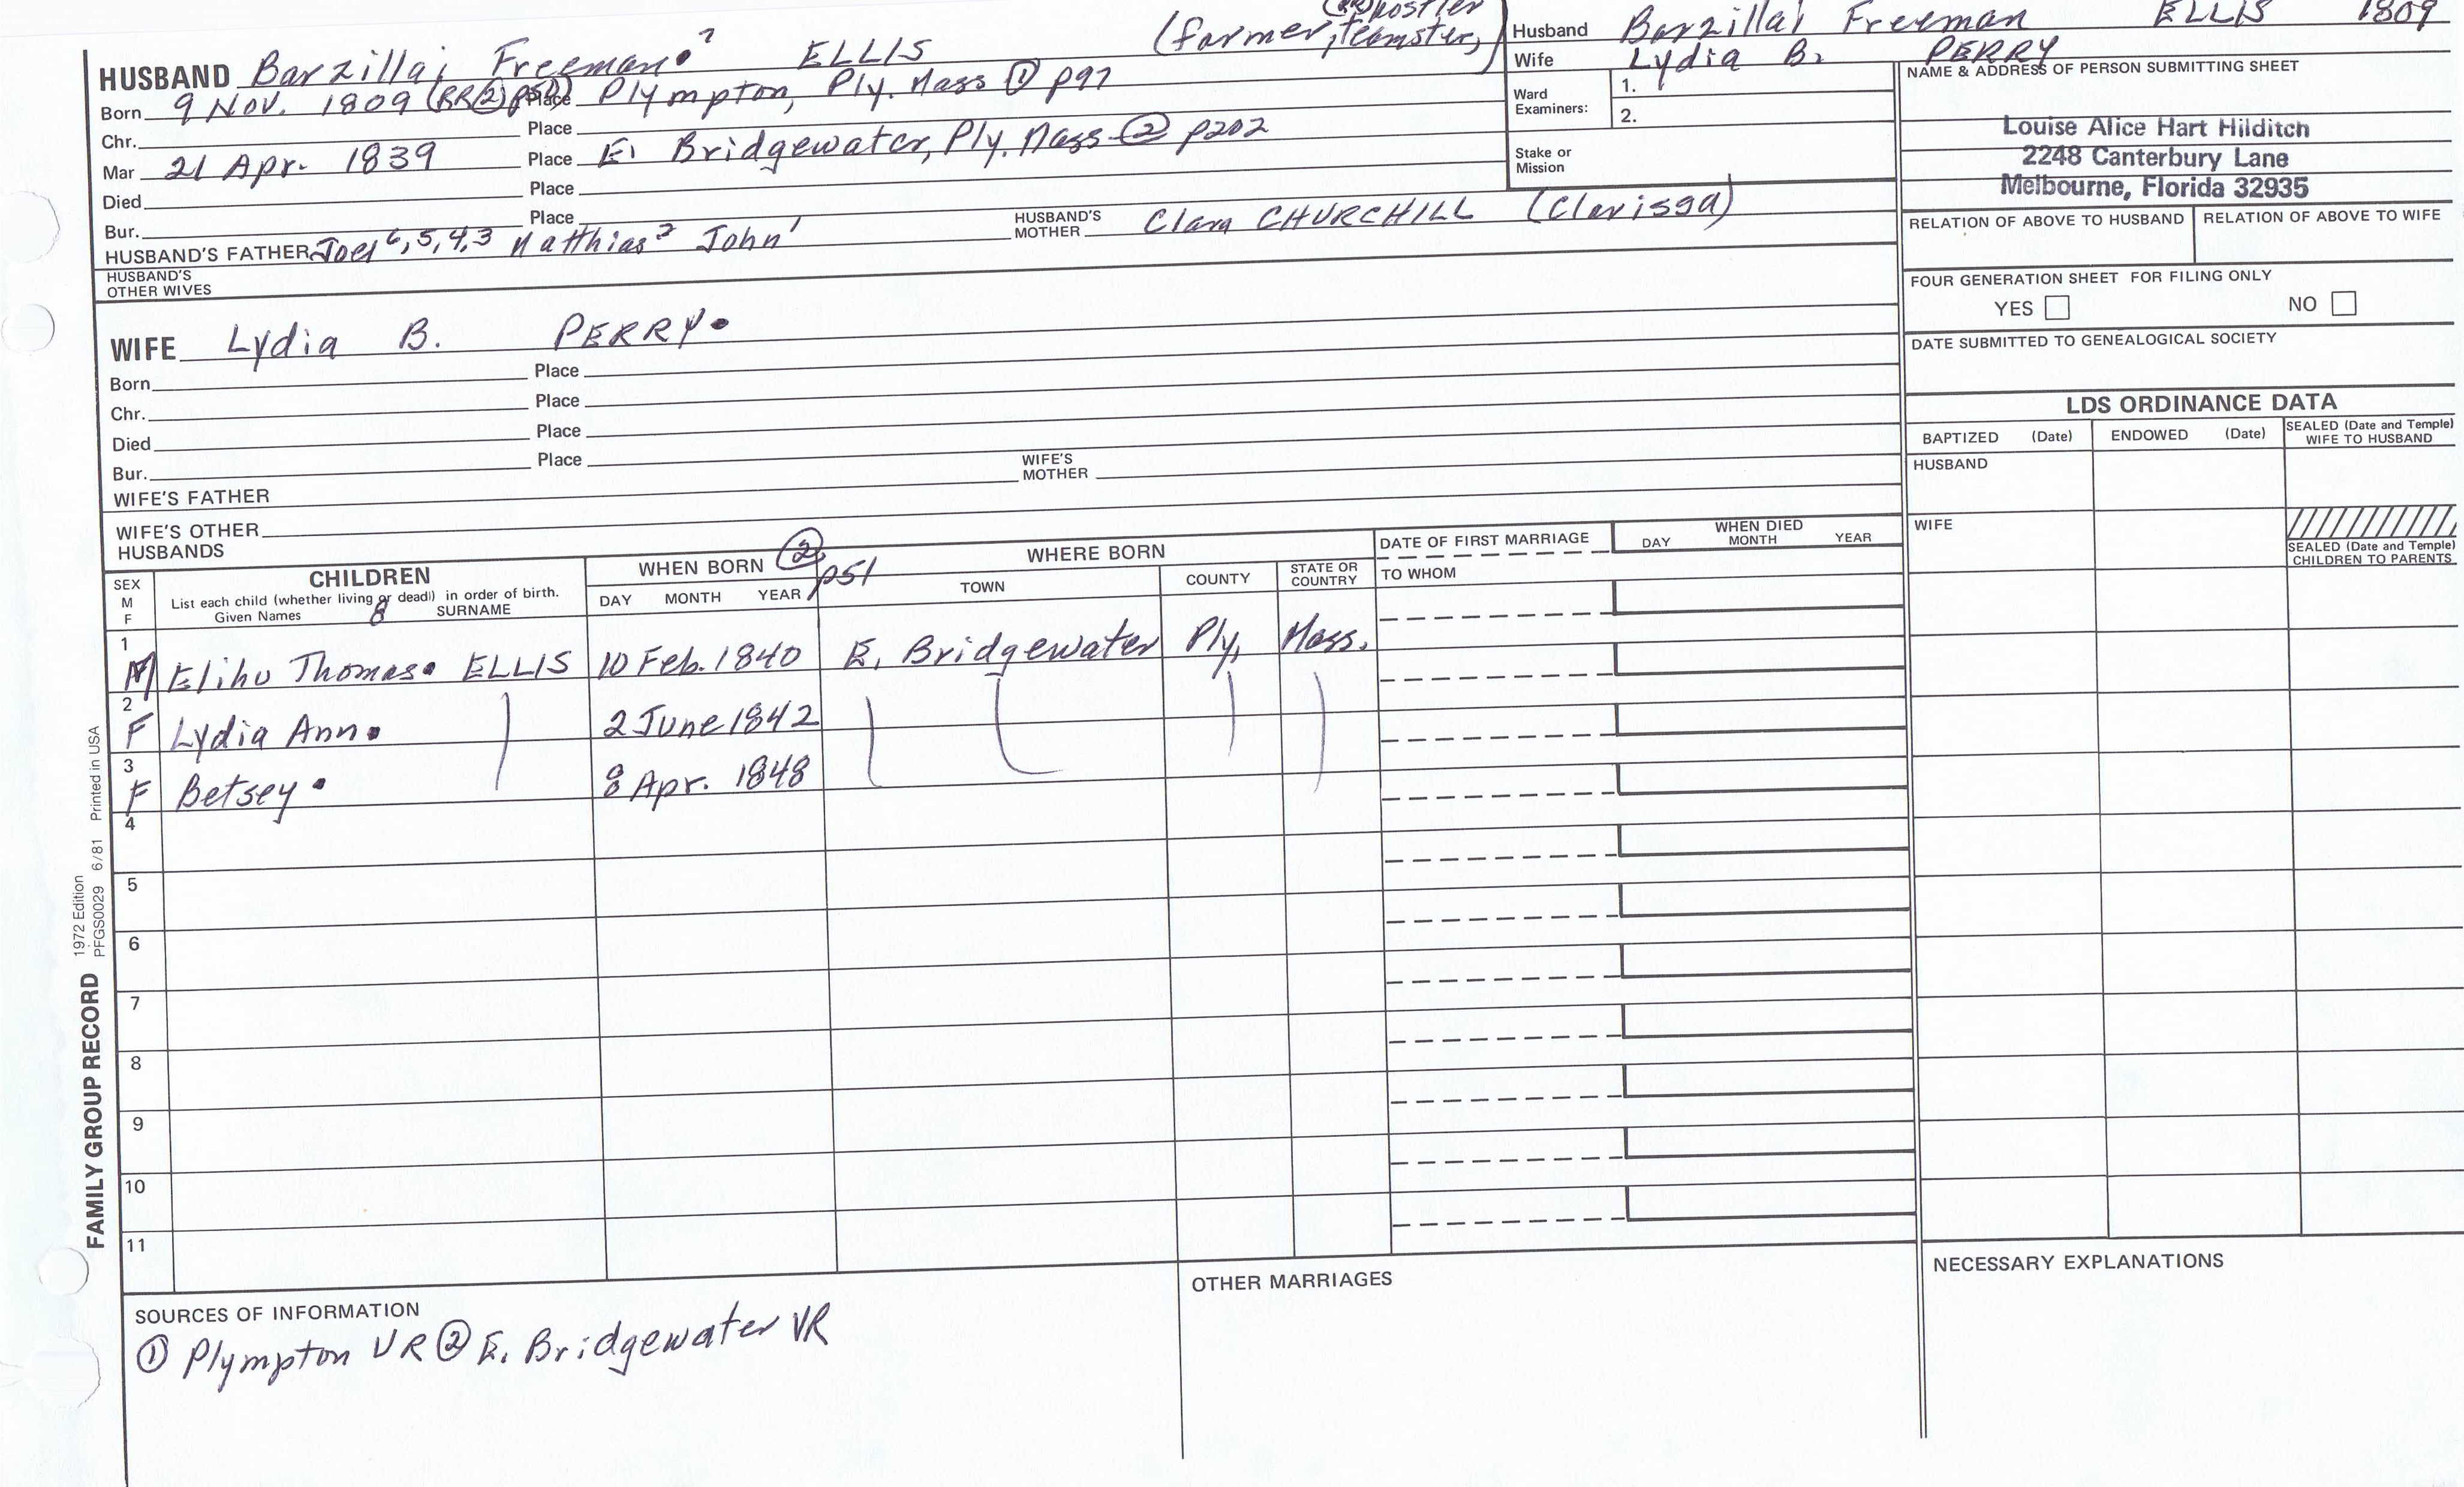 (RR) hostler
(farmer, teamster,)
HUSBAND Barzillai Freeman 7 ELLIS
Born 9 Nov. 1809 (BR② p50) Place Plympton, Ply. Mass ① p97
Chr. Place
Mar 21 Apr. 1839 Place E. Bridgewater, Ply. Mass ② p202
Died Place
Bur. Place
HUSBAND'S FATHER Joel 6,5,4,3 Matthias 2 John 1 HUSBAND'S MOTHER Clara CHURCHILL (Clarissa)
HUSBAND'S OTHER WIVES
WIFE Lydia B. PERRY
Born Place
Chr. Place
Died Place
Bur. Place
WIFE'S FATHER WIFE'S MOTHER
WIFE'S OTHER HUSBANDS
Husband Barzillai Freeman ELLIS 1809
Wife Lydia B. PERRY
Ward Examiners: 1.
2.
Stake or Mission
NAME & ADDRESS OF PERSON SUBMITTING SHEET
Louise Alice Hart Hilditch
2248 Canterbury Lane
Melbourne, Florida 32935
RELATION OF ABOVE TO HUSBAND RELATION OF ABOVE TO WIFE
FOUR GENERATION SHEET FOR FILING ONLY
YES NO
DATE SUBMITTED TO GENEALOGICAL SOCIETY
LDS ORDINANCE DATA
BAPTIZED (Date) ENDOWED (Date) SEALED (Date and Temple) WIFE TO HUSBAND
HUSBAND
WIFE
SEALED (Date and Temple) CHILDREN TO PARENTS
SEX M F
CHILDREN
List each child (whether living or dead) in order of birth.
Given Names 8 SURNAME
WHEN BORN ② p51
DAY MONTH YEAR
WHERE BORN
TOWN COUNTY STATE OR COUNTRY
DATE OF FIRST MARRIAGE
TO WHOM
WHEN DIED
DAY MONTH YEAR
1 M Elihu Thomas ELLIS 10 Feb. 1840 E. Bridgewater Ply. Mass.
2 F Lydia Ann 2 June 1842
3 F Betsey 8 Apr. 1848
4
5
6
7
8
9
10
11
FAMILY GROUP RECORD
1972 Edition
PFGS0029 6/81 Printed in USA
SOURCES OF INFORMATION
① Plympton VR ② E. Bridgewater VR
OTHER MARRIAGES
NECESSARY EXPLANATIONS